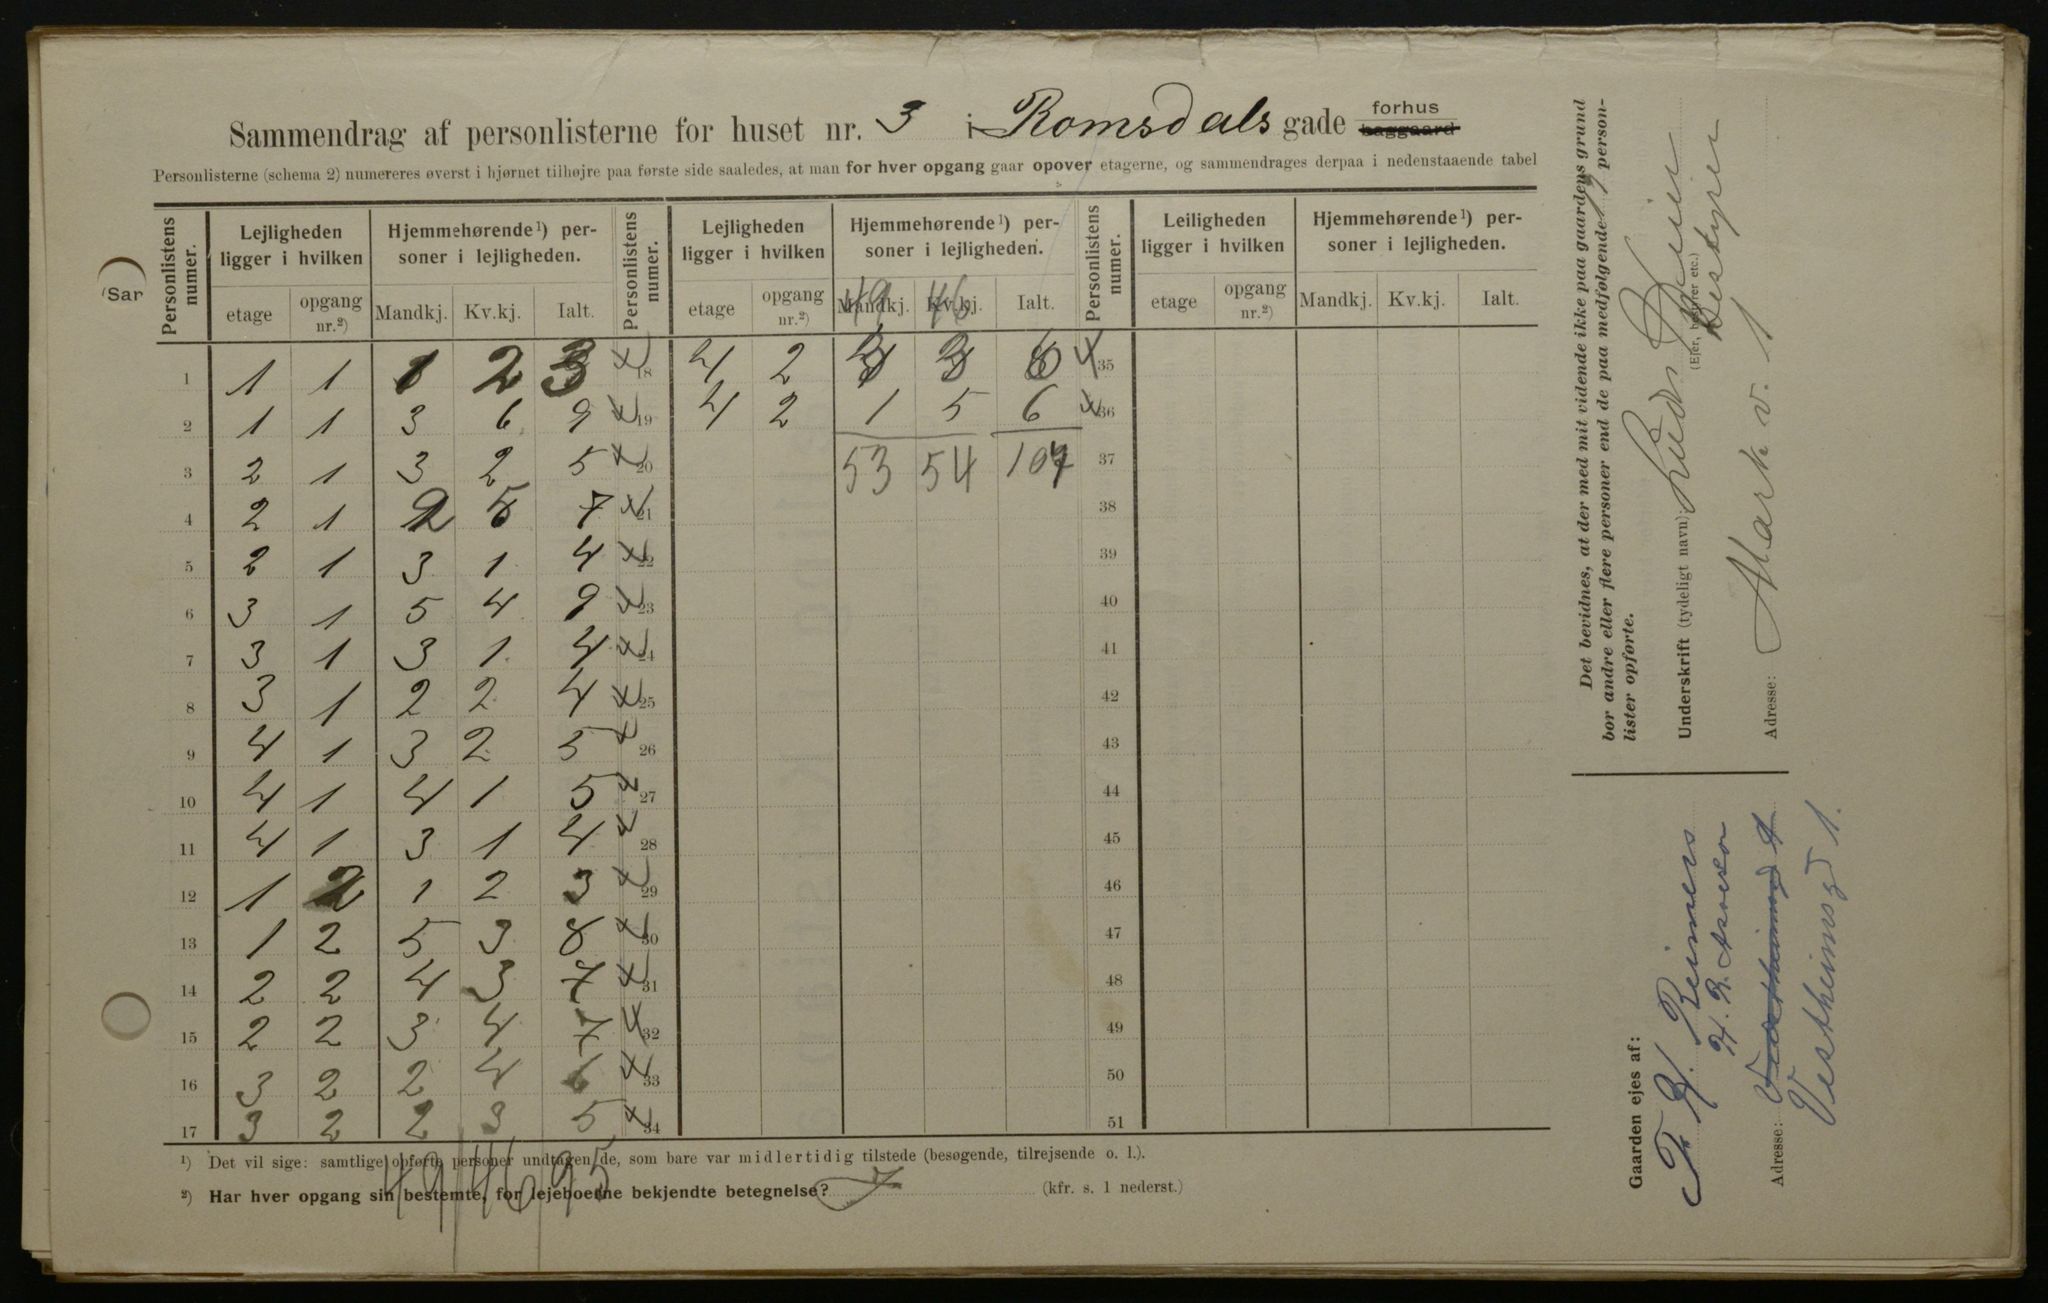 Sammendrag af personlisterne for huset nr. 3 i Romsdals gade forhus baggaard
Personlisterne (schema 2) numereres øverst i hjørnet tilhøjre paa første side saaledes, at man for hver opgang gaar opover etagerne, og sammendrages derpaa i nedenstaaende tabel
Personlistens numer. Lejligheden ligger i hvilken Hjemmehørende¹) personer i lejligheden. Personlistens numer. Lejligheden ligger i hvilken Hjemmehørende¹) personer i lejligheden. Personlistens numer. Leiligheden ligger i hvilken Hjemmehørende¹) personer i lejligheden.
etage opgang nr.²) Mandkj. Kv.kj. Ialt. etage opgang nr.²) Mandkj. Kv.kj. Ialt. etage opgang nr.²) Mandkj. Kv.kj. Ialt.
49 46
1 1 1 1 2 3 18 4 2 3 3 6 35
2 1 1 3 6 9 19 4 2 1 5 6 36
3 2 1 3 2 5 20 53 54 107 37
4 2 1 2 5 7 21 38
5 2 1 3 1 4 22 39
6 3 1 5 4 9 23 40
7 3 1 3 1 4 24 41
8 3 1 2 2 4 25 42
9 4 1 3 2 5 26 43
10 4 1 4 1 5 27 44
11 4 1 3 1 4 28 45
12 1 2 1 2 3 29 46
13 1 2 5 3 8 30 47
14 2 2 4 3 7 31 48
15 2 2 3 4 7 32 49
16 3 2 2 4 6 33 50
17 3 2 2 3 5 34 51
49 46 95
¹) Det vil sige: samtlige opførte personer undtagen de, som bare var midlertidig tilstede (besøgende, tilrejsende o. l.).
²) Har hver opgang sin bestemte, for lejeboerne bekjendte betegnelse? (kfr. s. 1 nederst.)
(Sar
Det bevidnes, at der med mit vidende ikke paa gaardens grund
bor andre eller flere personer end de paa medfølgende personlister opførte.
Underskrift (tydeligt navn):
(Ejer, bestyrer etc.)
Bestyrer
Adresse: Mark v. 1
Gaarden ejes af:
F. H. Reimers
H. R. Assessor
Adresse:
Vestheimsgd 1.